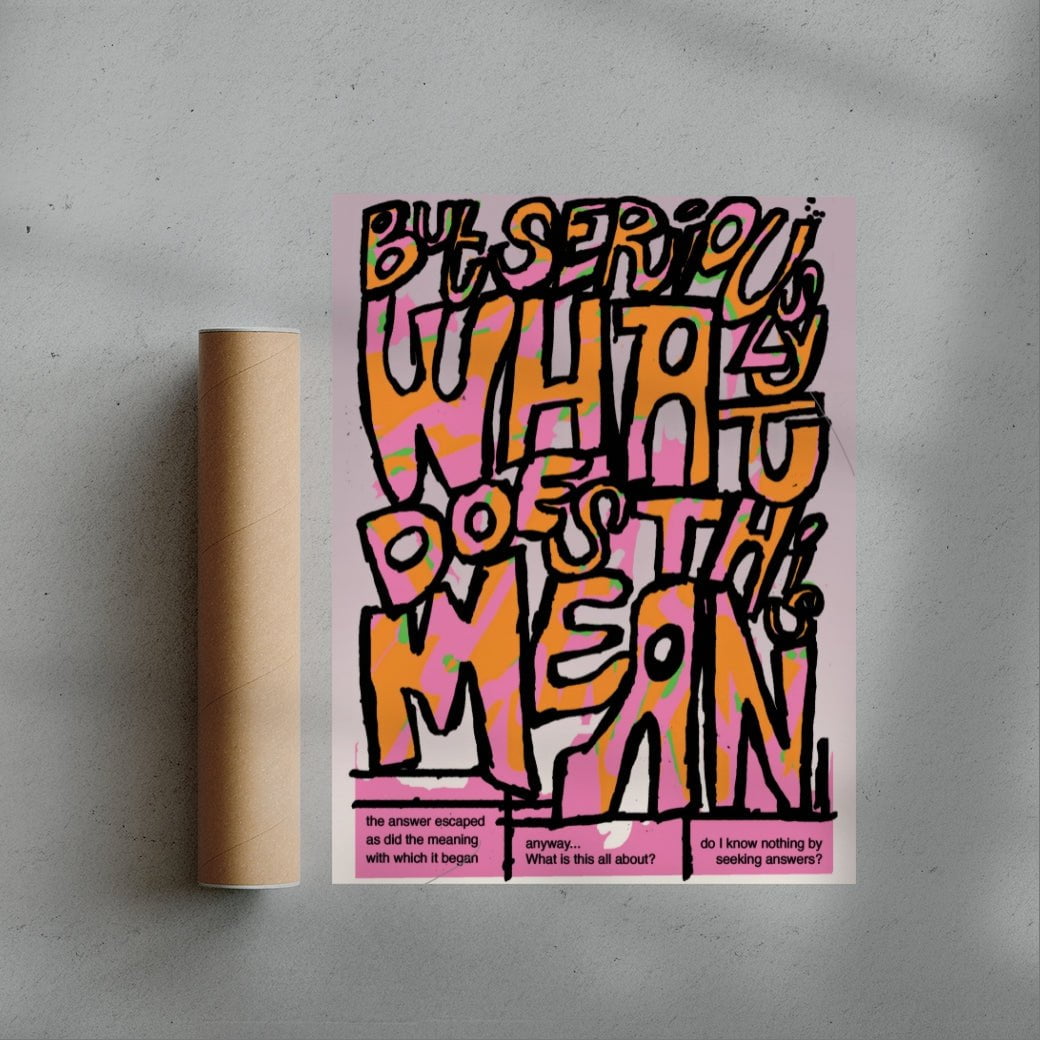 But SERiOUSLY
WHAT
DOES THiS
MEAN
the answer escaped
as did the meaning
with which it began
anyway...
What is this all about?
do I know nothing by
seeking answers?